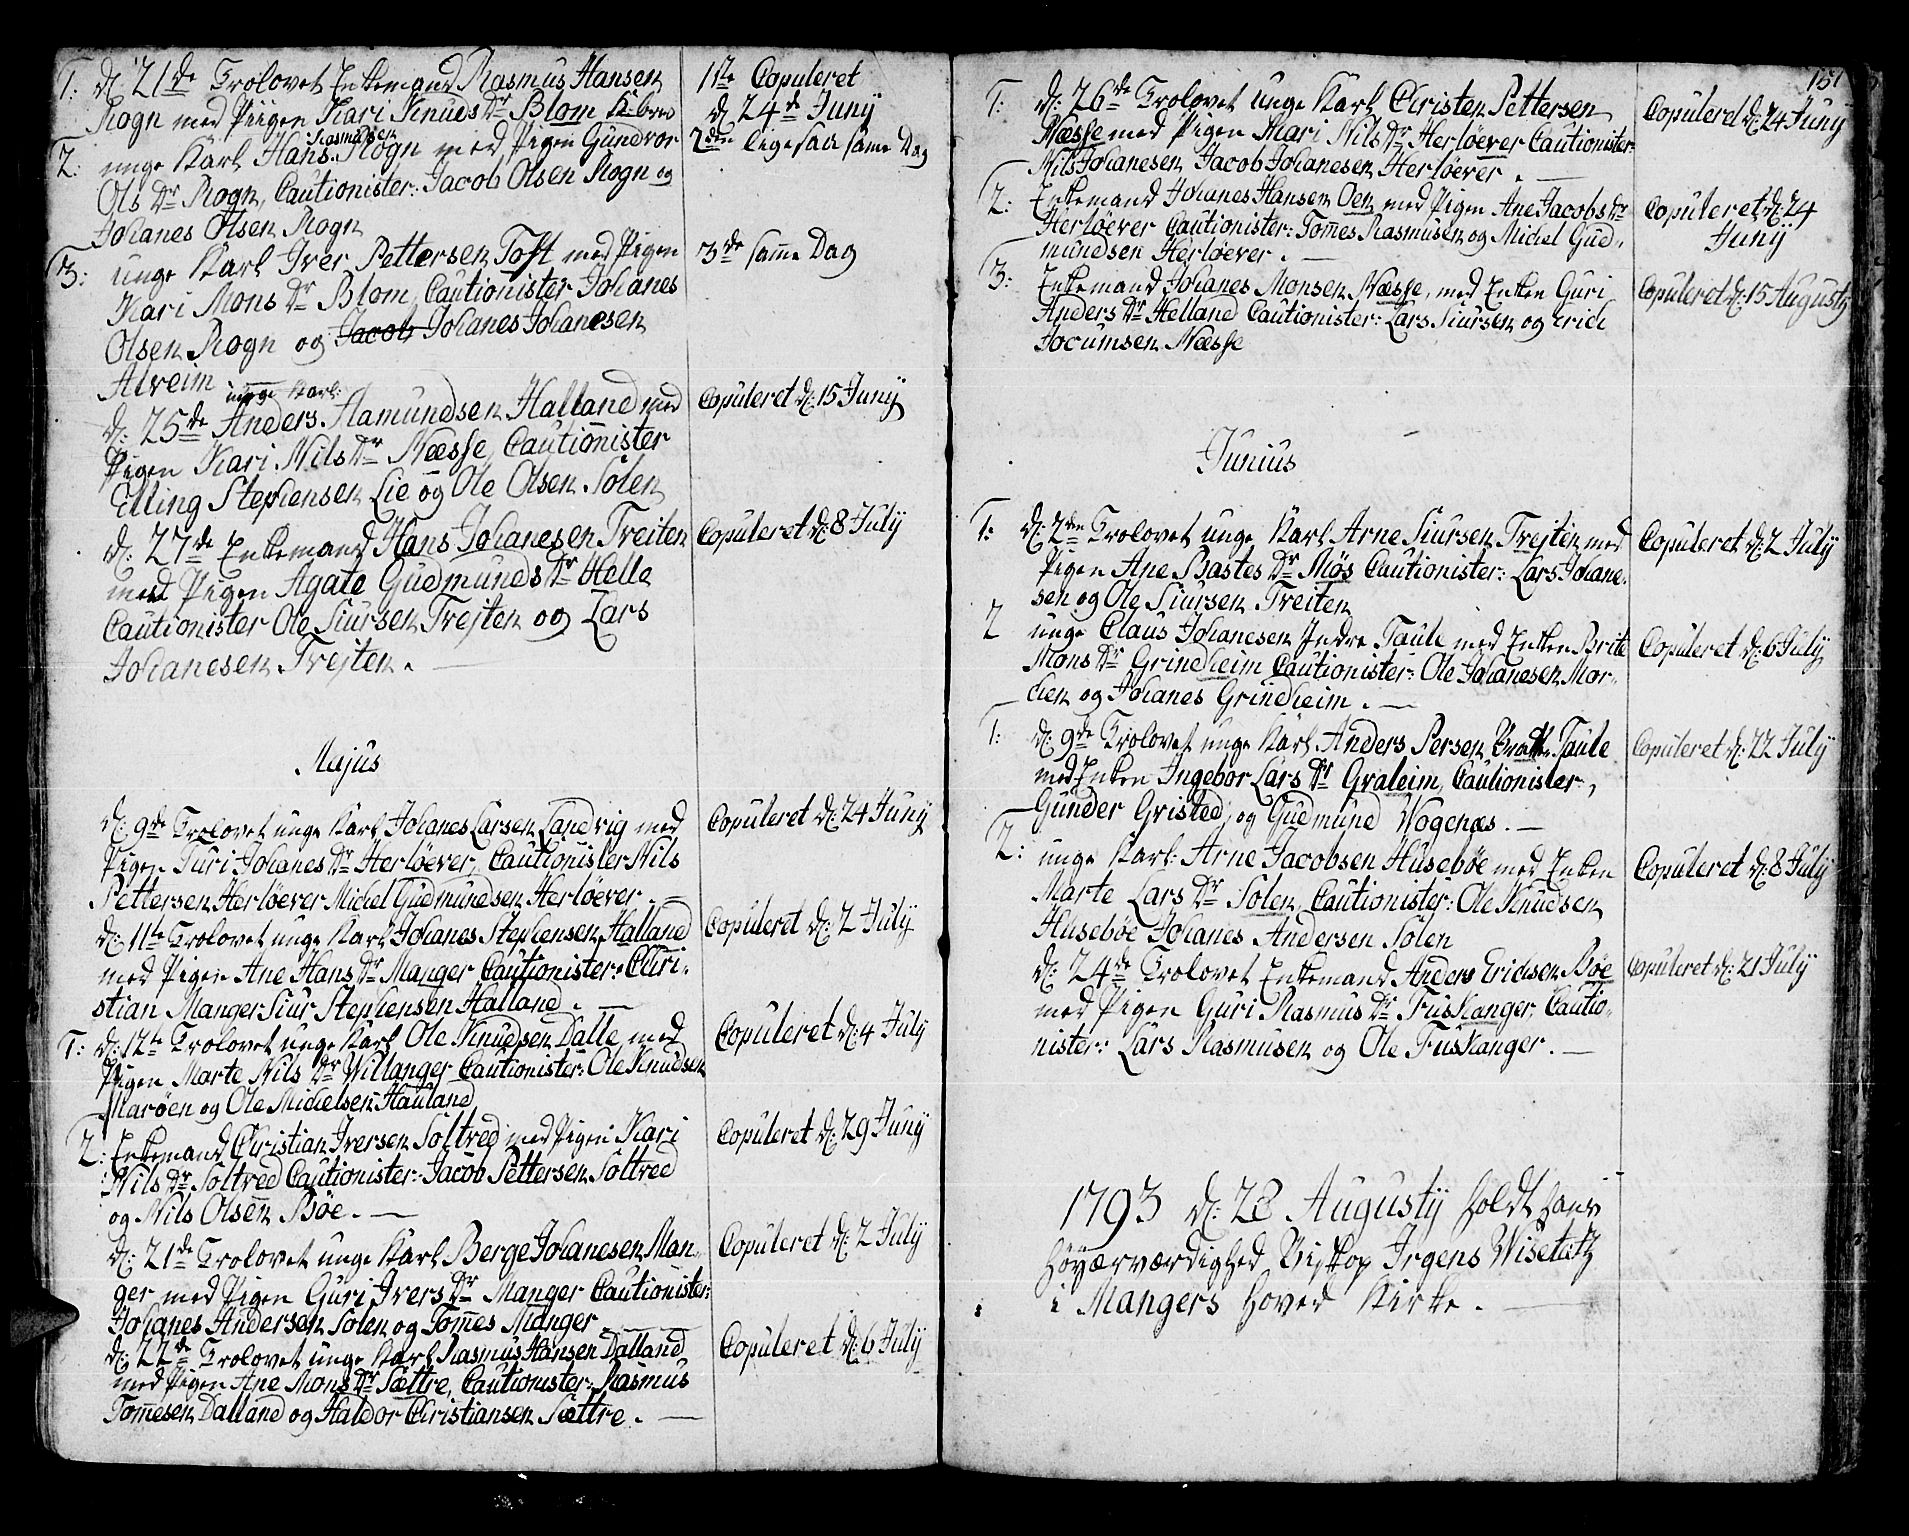 1: d: 21de Trolovet Enkemand Rasmus Hansen
Rogn med Piigen Kari Knuds Dr Blom
2: unge Karl Hans Rasmusen Rogn med Pigen Gundvor
Ols Dr Rogn, Cautionister: Jacob Olsen Rogn og
Johanes Olsen Rogn
3: unge Karl Iver Pettersen Toft med Pigen
Kari Mons Dr Blom, Cautionister Johanes
Olsen Rogn og Jacob Johanes Johanesen
Alveim
unge Karl
d: 25de Anders Hamundsen Halland med
Pigen Kari Nils Dr Næsse, Cautionister
Elling Stephensen Lie og Ole Olsen Solen
d: 27de Enkemand Hans Johanesen Treiten
med Pigen Agate Gudmunds Dr Helle
Cautionister Ole Siursen Trejten og Lars
Johanesen Trejten.
1te Copuleret
d 24de Junij
2den ligesaa same Dag
3de same Dag
Copuleret d: 15 Junij
Copuleret d: 8 Julij
Majus
d: 9de Trolovet unge Karl Johanes Larsen Landvig med
Pigen Turi Johanes Dr Herløever, Cautionister Nils
Pettersen Herløever Michel Gudmundsen Herløever.
d: 11te Trolovet unge Karl Johanes Stephensen Halland
med Pigen Ane Hans Dr Manger Cautionister: Chri-
stian Manger Siur Stephensen Halland.
1: d: 12te Trolovet unge Karl Ole Knudsen Dalle med
Pigen Marte Nils Dr Willanger Cautionister: Ole Knudsen
Marøen og Ole Michelsen Hauland
2: Enkemand Christian Iversen Soltred med Pigen Kari
Nils Dr Soltred Cautionister: Jacob Pettersen Soltred
og Nils Olsen Bøe.
d: 21de Trolovet unge Karl Berge Johanesen Man-
ger med Pigen Guri Ivers Dr Manger Cautionister:
Johanes Andersen Solen og Tomes Manger
d: 22de Trolovet unge Karl Rasmus Hansen Dalland
med Pigen Ane Mons Dr Sættre, Cautionister: Rasmus
Tomesen Dalland og Haldor Christiansen Sættre.
Copuleret d: 24 Junij
Copuleret d: 2 Julij
Copuleret d: 4 Julij
Copuleret d: 29 Junij
Copuleret d: 2 Julij
Copuleret d: 6 Julij
151
1: d: 26de Trolovet unge Karl Christen Pettersen
Næsse med Pigen Mari Nils Dr Herløever Cautionister:
Nils Johanesen Jacob Johanesen Herløever.
2: Enkemand Johanes Hansen Oen med Pigen Ane Jacobs Dr
Herløever Cautionister: Tomes Rasmusen og Michel Gud-
mundsen Herløever.
3: Enkemand Johanes Monsen Næsse, med Enken Guri
Anders Dr Helland Cautionister: Lars Siursen og Erich
Jocumsen Næsse
Copulerd d: 24 Junij
Copuleret d: 24
Junij
Copuleret d: 15 Augustij
Junius
1: d: 2den Trolovet unge Karl Arne Siursen Trejten med
Pigen Ane Bastes Dr Mös Cautionister: Lars Johane-
sen og Ole Siursen Treiten
2 unge Claus Johanesen Indre Taule med Enken Brite
Mons Dr Grindheim Cautionister: Ole Johanesen Mar-
chen og Johanes Grindheim.
1: d: 9de Trolovet unge Karl Anders Persen Taule
med Enken Ingebor Lars Dr Graleim, Cautionister,
Gunder Gristed, og Gudmund Wogenæs.
2: unge Karl: Arne Jacobsen Husebøe med Enken
Marte Lars Dr Solen, Cautionister: Ole Knudsen
Husebøe Johanes Andersen Solen
d: 24de Trolovet Enkemand Anders Erichsen Bøe
med Pigen Guri Rasmus Dr Fuskanger, Cautio-
nister: Lars Rasmusen og Ole Fuskanger.
Copuleret d: 2 Julij
Copuleret d: 6 Julij
Copuleret d: 22 Julij
Copuleret d: 8 Julij
Copuleret d: 21 Julij
1793 d: 28 Augustij holdt hans
Høyærværdighed Biskop Irgens Wisetatz
i Mangers Hoved Kirke.